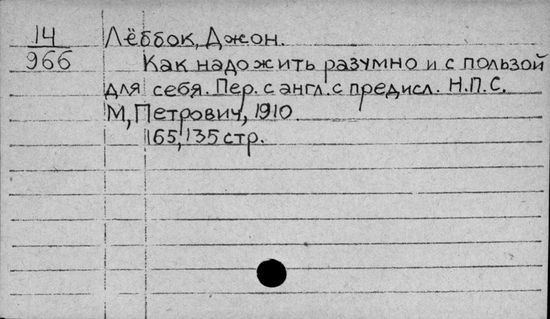 14
966
Лёббок, Джон.
Как надо жить разумно и с пользой
для себя. Пер. с англ. с предисл. Н.П.С.
М, Петрович, 1910.
165, 135 стр.